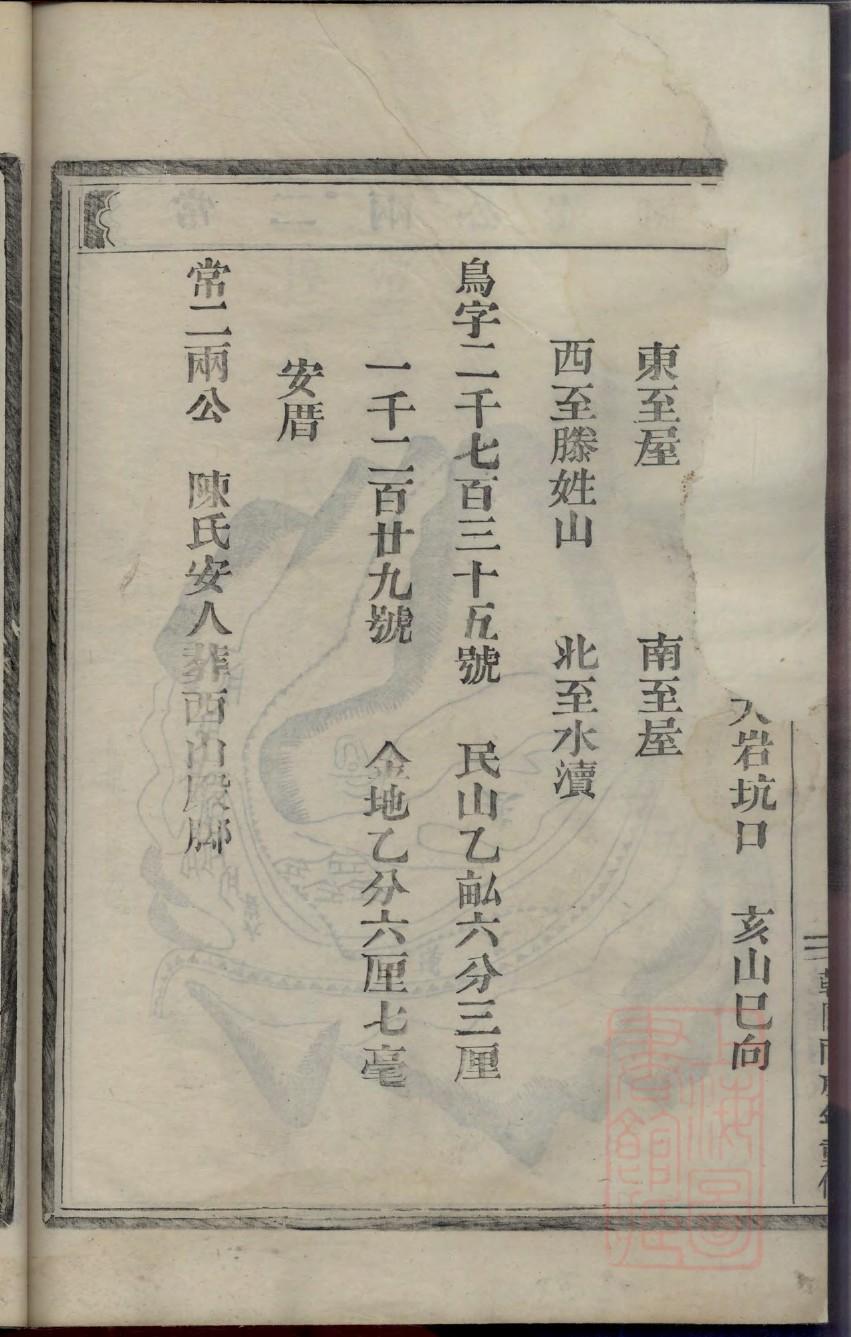 大岩坑口　亥山巳向
東至屋　南至屋
西至滕姓山　北至水瀆
鳥字二千七百三十五號　民山乙畝六分三厘
一千二百廿九號　金地乙分六厘七毫
安厝
常二兩公　陳氏安人葬西山殿脚